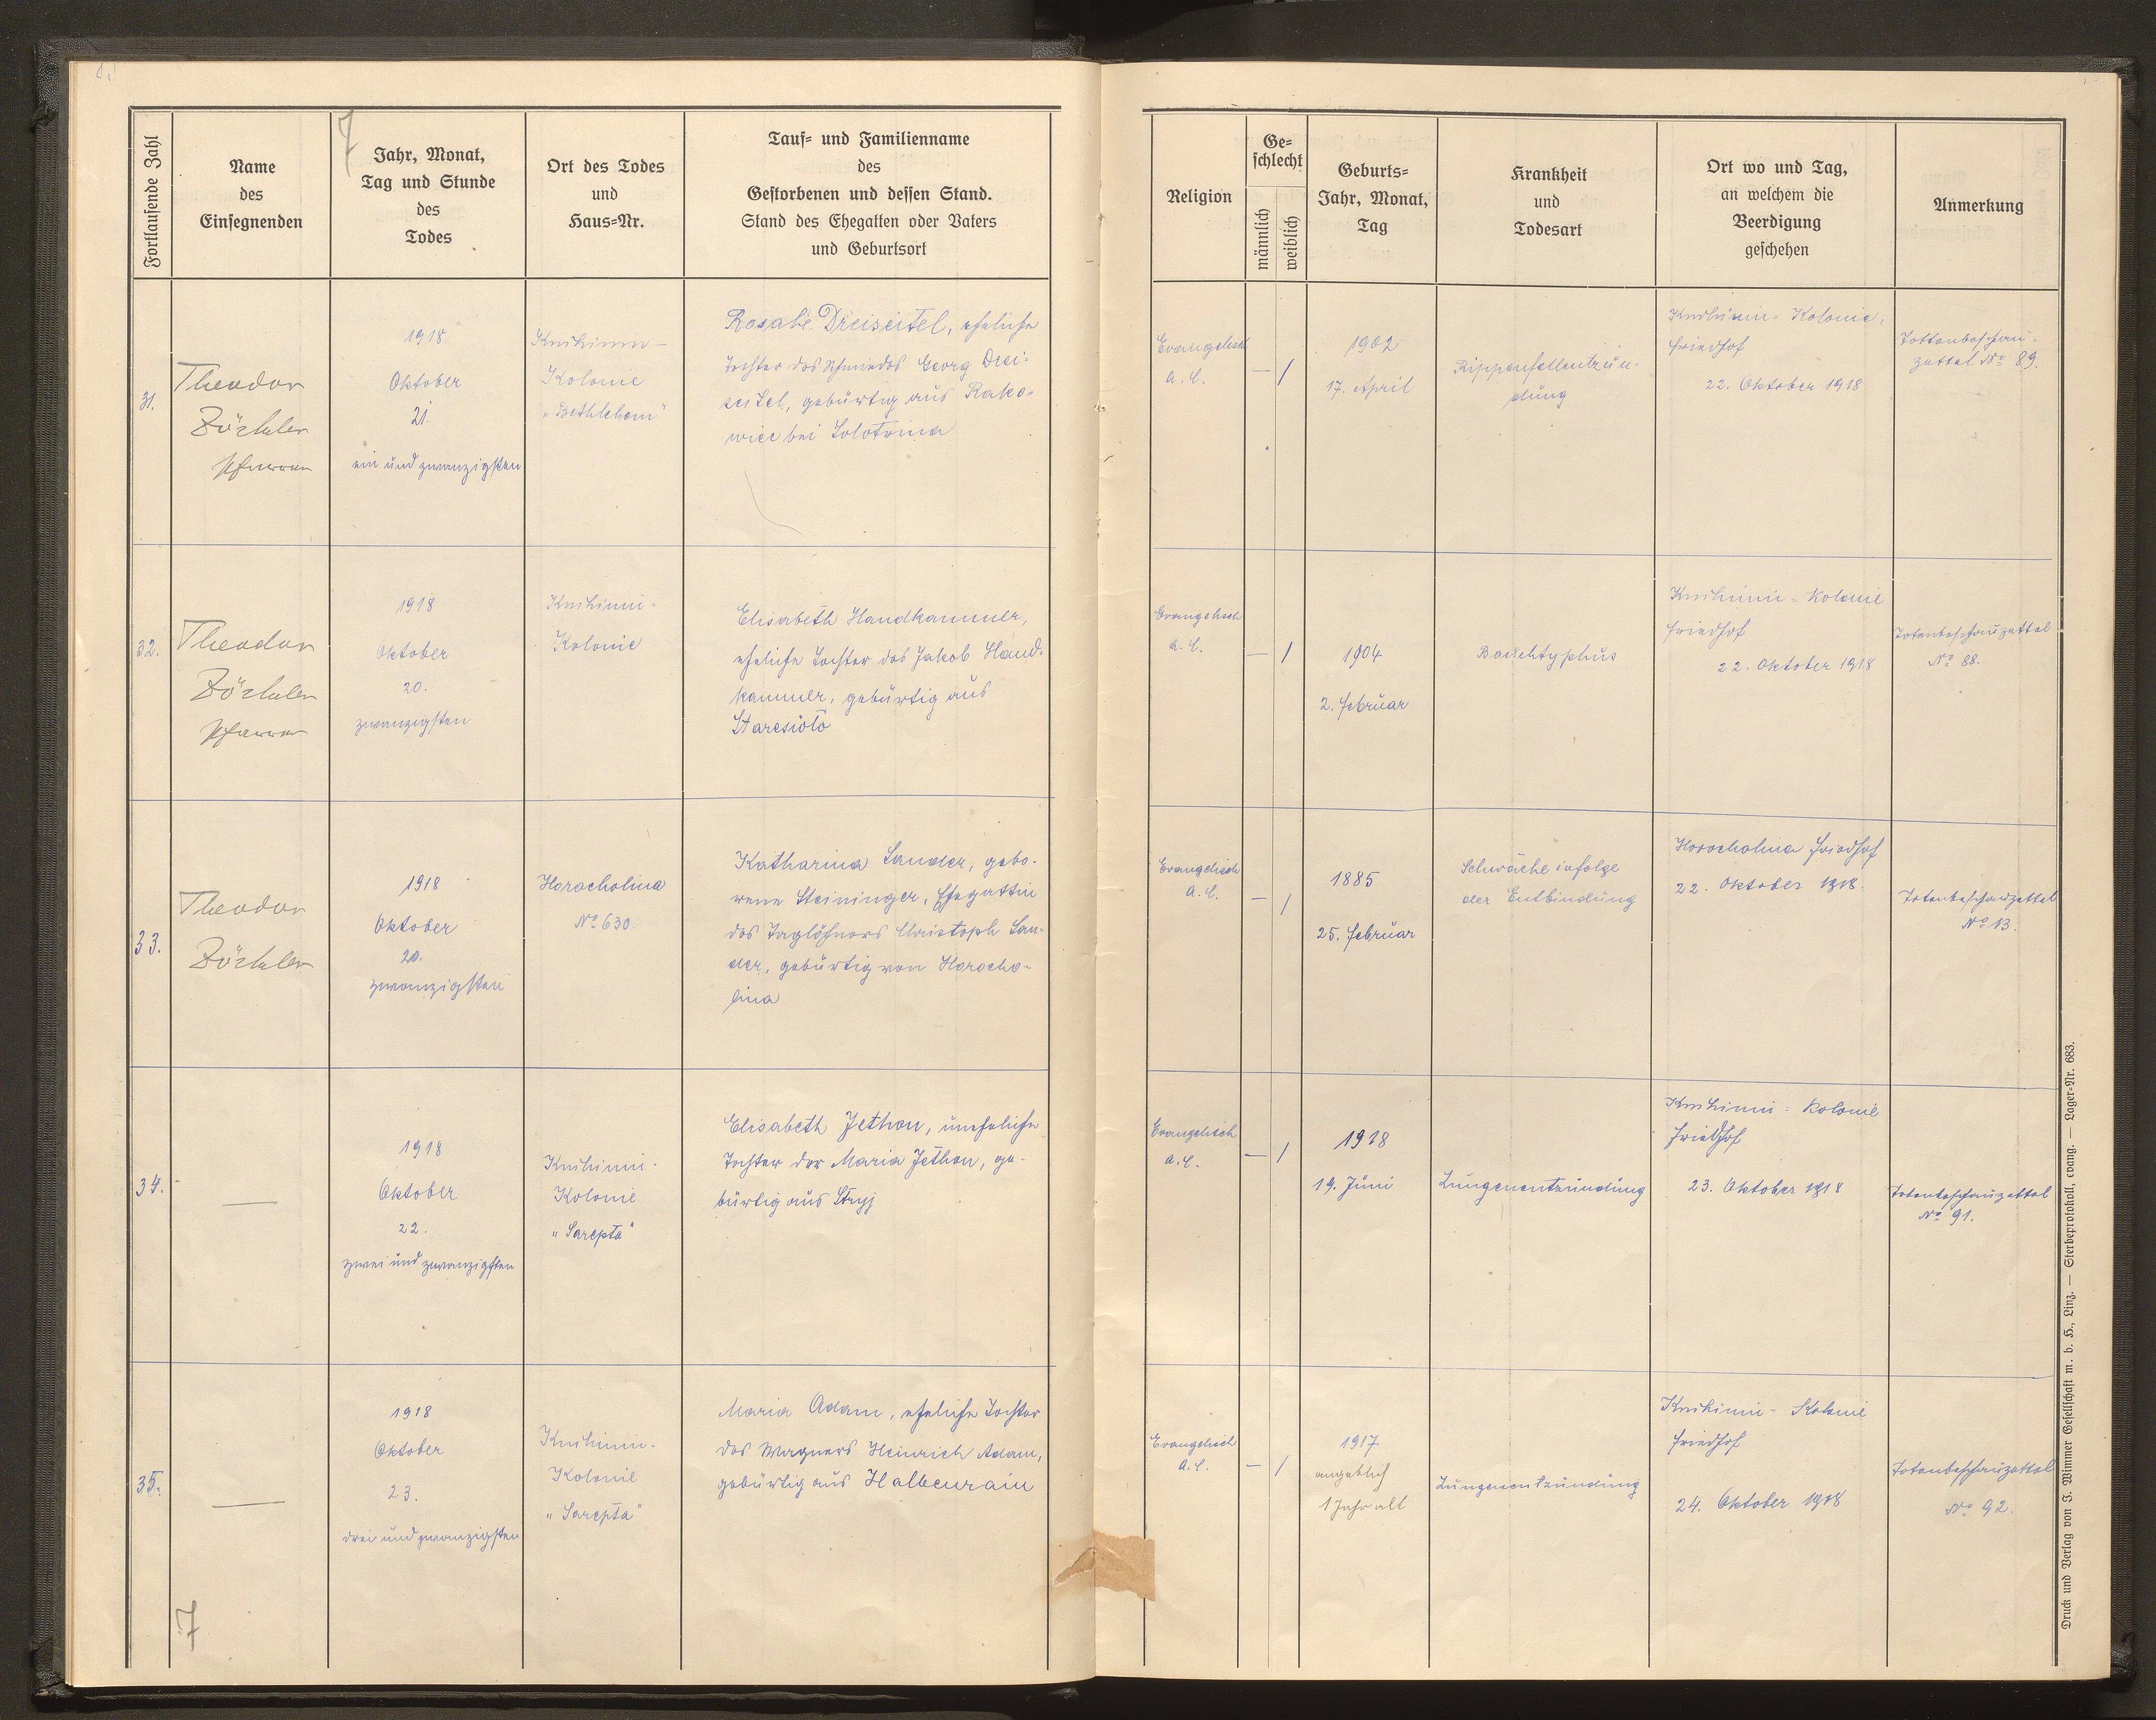 7
Fortlaufende Zahl
Name
des
Einsegnenden
Jahr, Monat,
Tag und Stunde
des
Todes
Ort des Todes
und
Haus=Nr.
Tauf= und Familienname
des
Gestorbenen und dessen Stand.
Stand des Ehegatten oder Vaters
und Geburtsort
Religion
Ge=
schlecht
männlich
weiblich
Geburts=
Jahr, Monat,
Tag
Krankheit
und
Todesart
Ort wo und Tag,
an welchem die
Beerdigung
geschehen
Anmerkung
31.
Theodor
Zöckler
Pfarrer
1918
Oktober
21.
ein und zwanzigsten
Knihinin-
Kolonie
"Bethlehem"
Rosalie Dreiseitel, eheliche
Tochter des Schmiedes Georg Drei=
seitel, gebürtig aus Rako=
wiec bei Solotwina
Evangelisch
A. C.
— /
1902
17. April
Rippenfellentzün=
dung
Knihinin= Kolonie,
Friedhof
22. Oktober 1918
Tottenbeschau=
zettel No 89.
32.
Theodor
Zöckler
Pfarrer
1918
Oktober
20.
zwanzigsten
Knihinin=
Kolonie
Elisabeth Handkammer,
eheliche Tochter des Jakob Hand=
kammer, gebürtig aus
Staresioło
Evangelisch
A. C.
— /
1904
2. Februar
Bauchtyphus
Knihinin = Kolonie
Friedhof
22. Oktober 1918
Totenbeschauzettel
No 88.
33.
Theodor
Zöckler
1918
Oktober
20.
zwanzigsten
Horocholina
No 630.
Katharina Sander, gebo=
rene Steininger, Ehegattin
des Taglöhners Christoph San=
der, gebürtig von Horocho=
lina
Evangelisch
A. C.
— /
1885
25. Februar
Schwäche infolge
der Entbindung
Horocholina Friedhof
22. Oktober 1918.
Totenbeschauzettel
No 13.
34.
—
1918
Oktober
22.
zwei und zwanzigsten
Knihinin-
Kolonie
"Sarepta"
Elisabeth Jethon, uneheliche
Tochter der Maria Jethon, ge=
bürtig aus Stryj
Evangelisch
A. C.
— /
1918
19. Juni
Lungenentzündung
Knihinin = Kolonie
Friedhof
23. Oktober 1918
Totenbeschauzettel
No 91.
35.
—
1918
Oktober
23.
drei und zwanzigsten
Knihinin-
Kolonie
"Sarepta"
Maria Adam, eheliche Tochter
des Wagners Heinrich Adam,
gebürtig aus Halbenrain
Evangelisch
A. C.
— /
1917
angeblich
1 Jahr alt
Lungenentzündung
Knihinin - Kolonie
Friedhof
24. Oktober 1918
Totenbeschauzettel
No 92.
7
Druck und Verlag von J. Wimmer Gesellschaft m. b. H., Linz. — Sterbeprotokoll, evang. — Lager=Nr. 683.